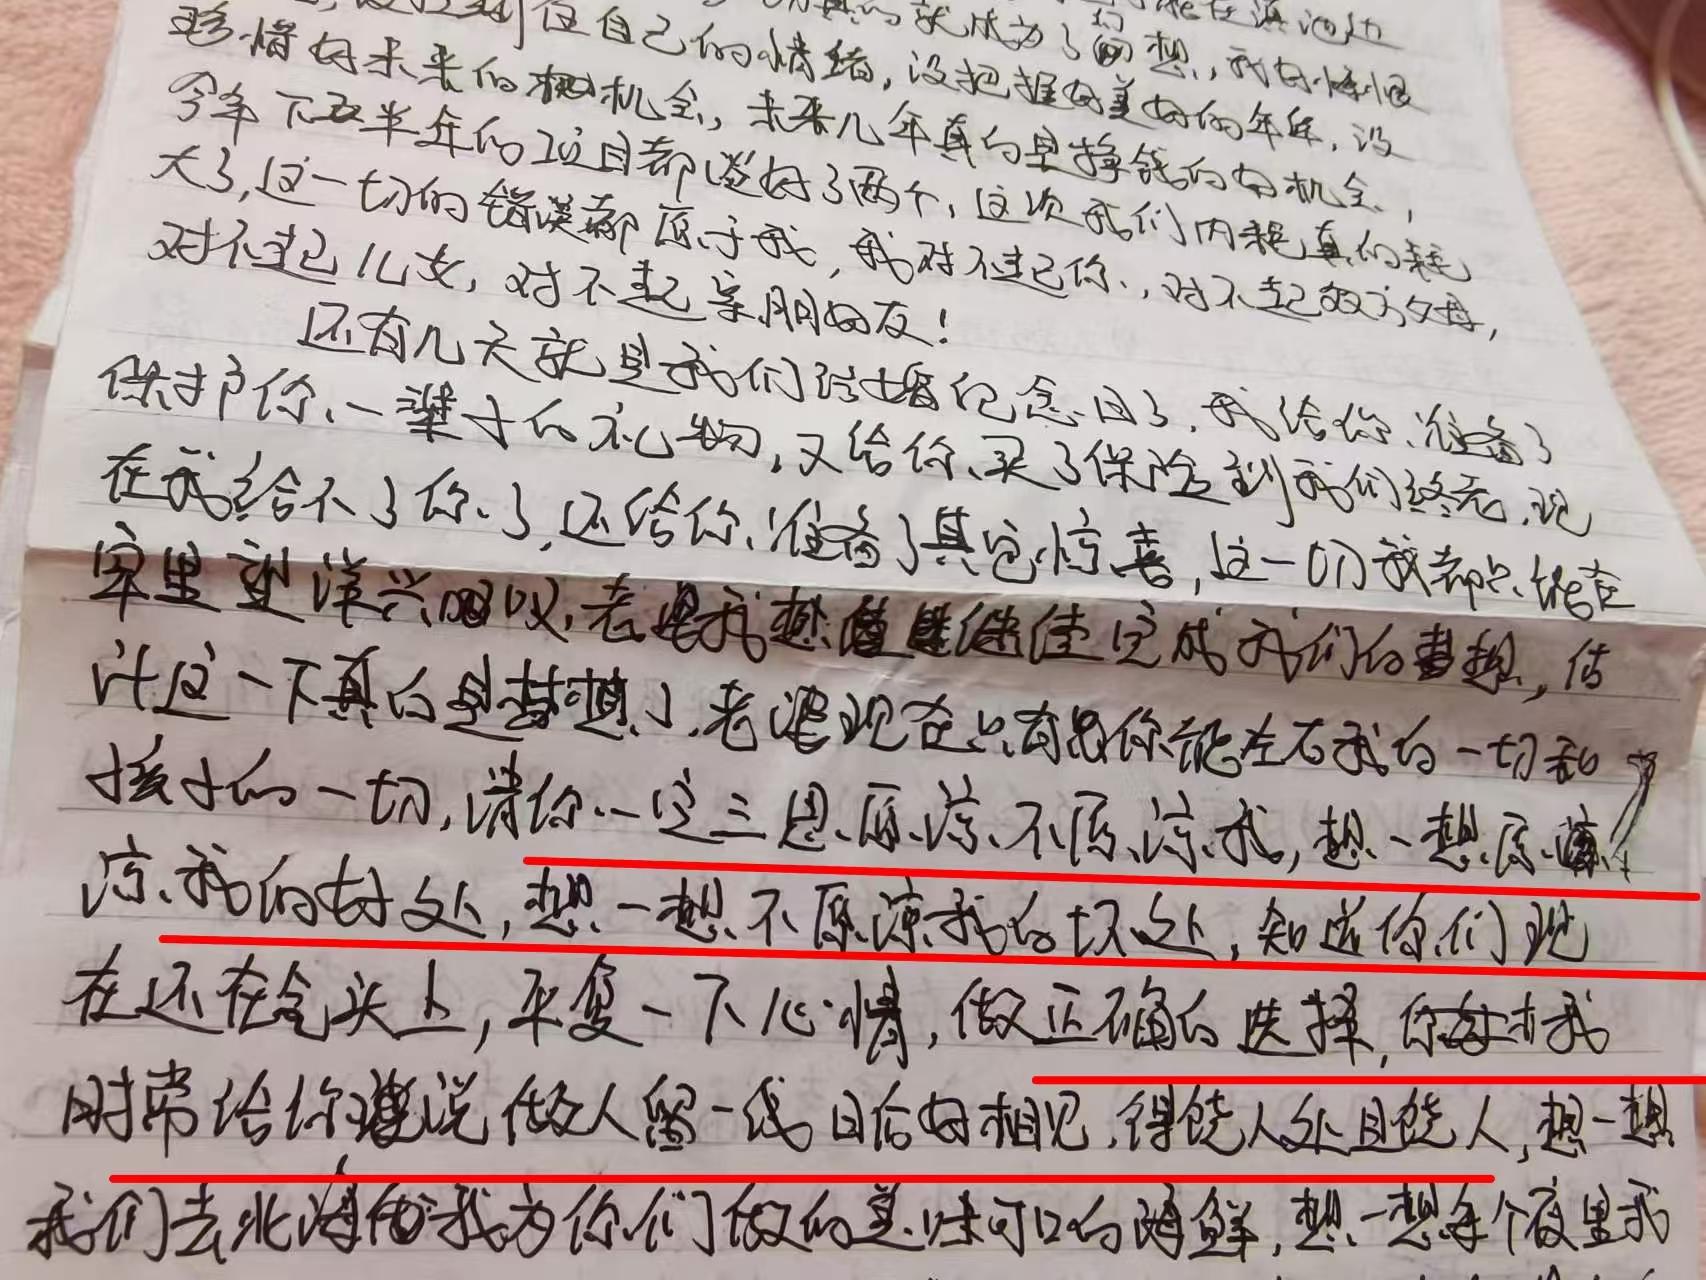 到自己的情绪，没把握好美好的年华，没
珍惜好未来的机会，未来几年真的是挣钱的好机会，
今年下半年的项目都谈好了两个，这次我们内耗真的耗
大了，这一切的错误都原于我，我对不起你，对不起双方父母，
对不起儿女，对不起亲朋好友！
还有几天就是我们结婚纪念日了，我给你准备了
保护你一辈子的礼物，又给你买了保险到我们终老，现
在我给不了你了，还给你准备了其它惊喜，这一切我都只能在
牢里望洋兴叹，老是我想继续完成我们的梦想，估
计这一下真的是梦想了，老婆现在只有你能左右我的一切和
孩子的一切，请你一定三思原谅不原谅我，想一想原
谅我的好处，想一想不原谅我的坏处，知道你们现
在还在气头上，平复一下心情，做正确的选择，你我
时常给你说做人留一线日后好相见，得饶人处且饶人，想一想
我们去北海我为你们做的美味可口的海鲜，想一想每个夜里我